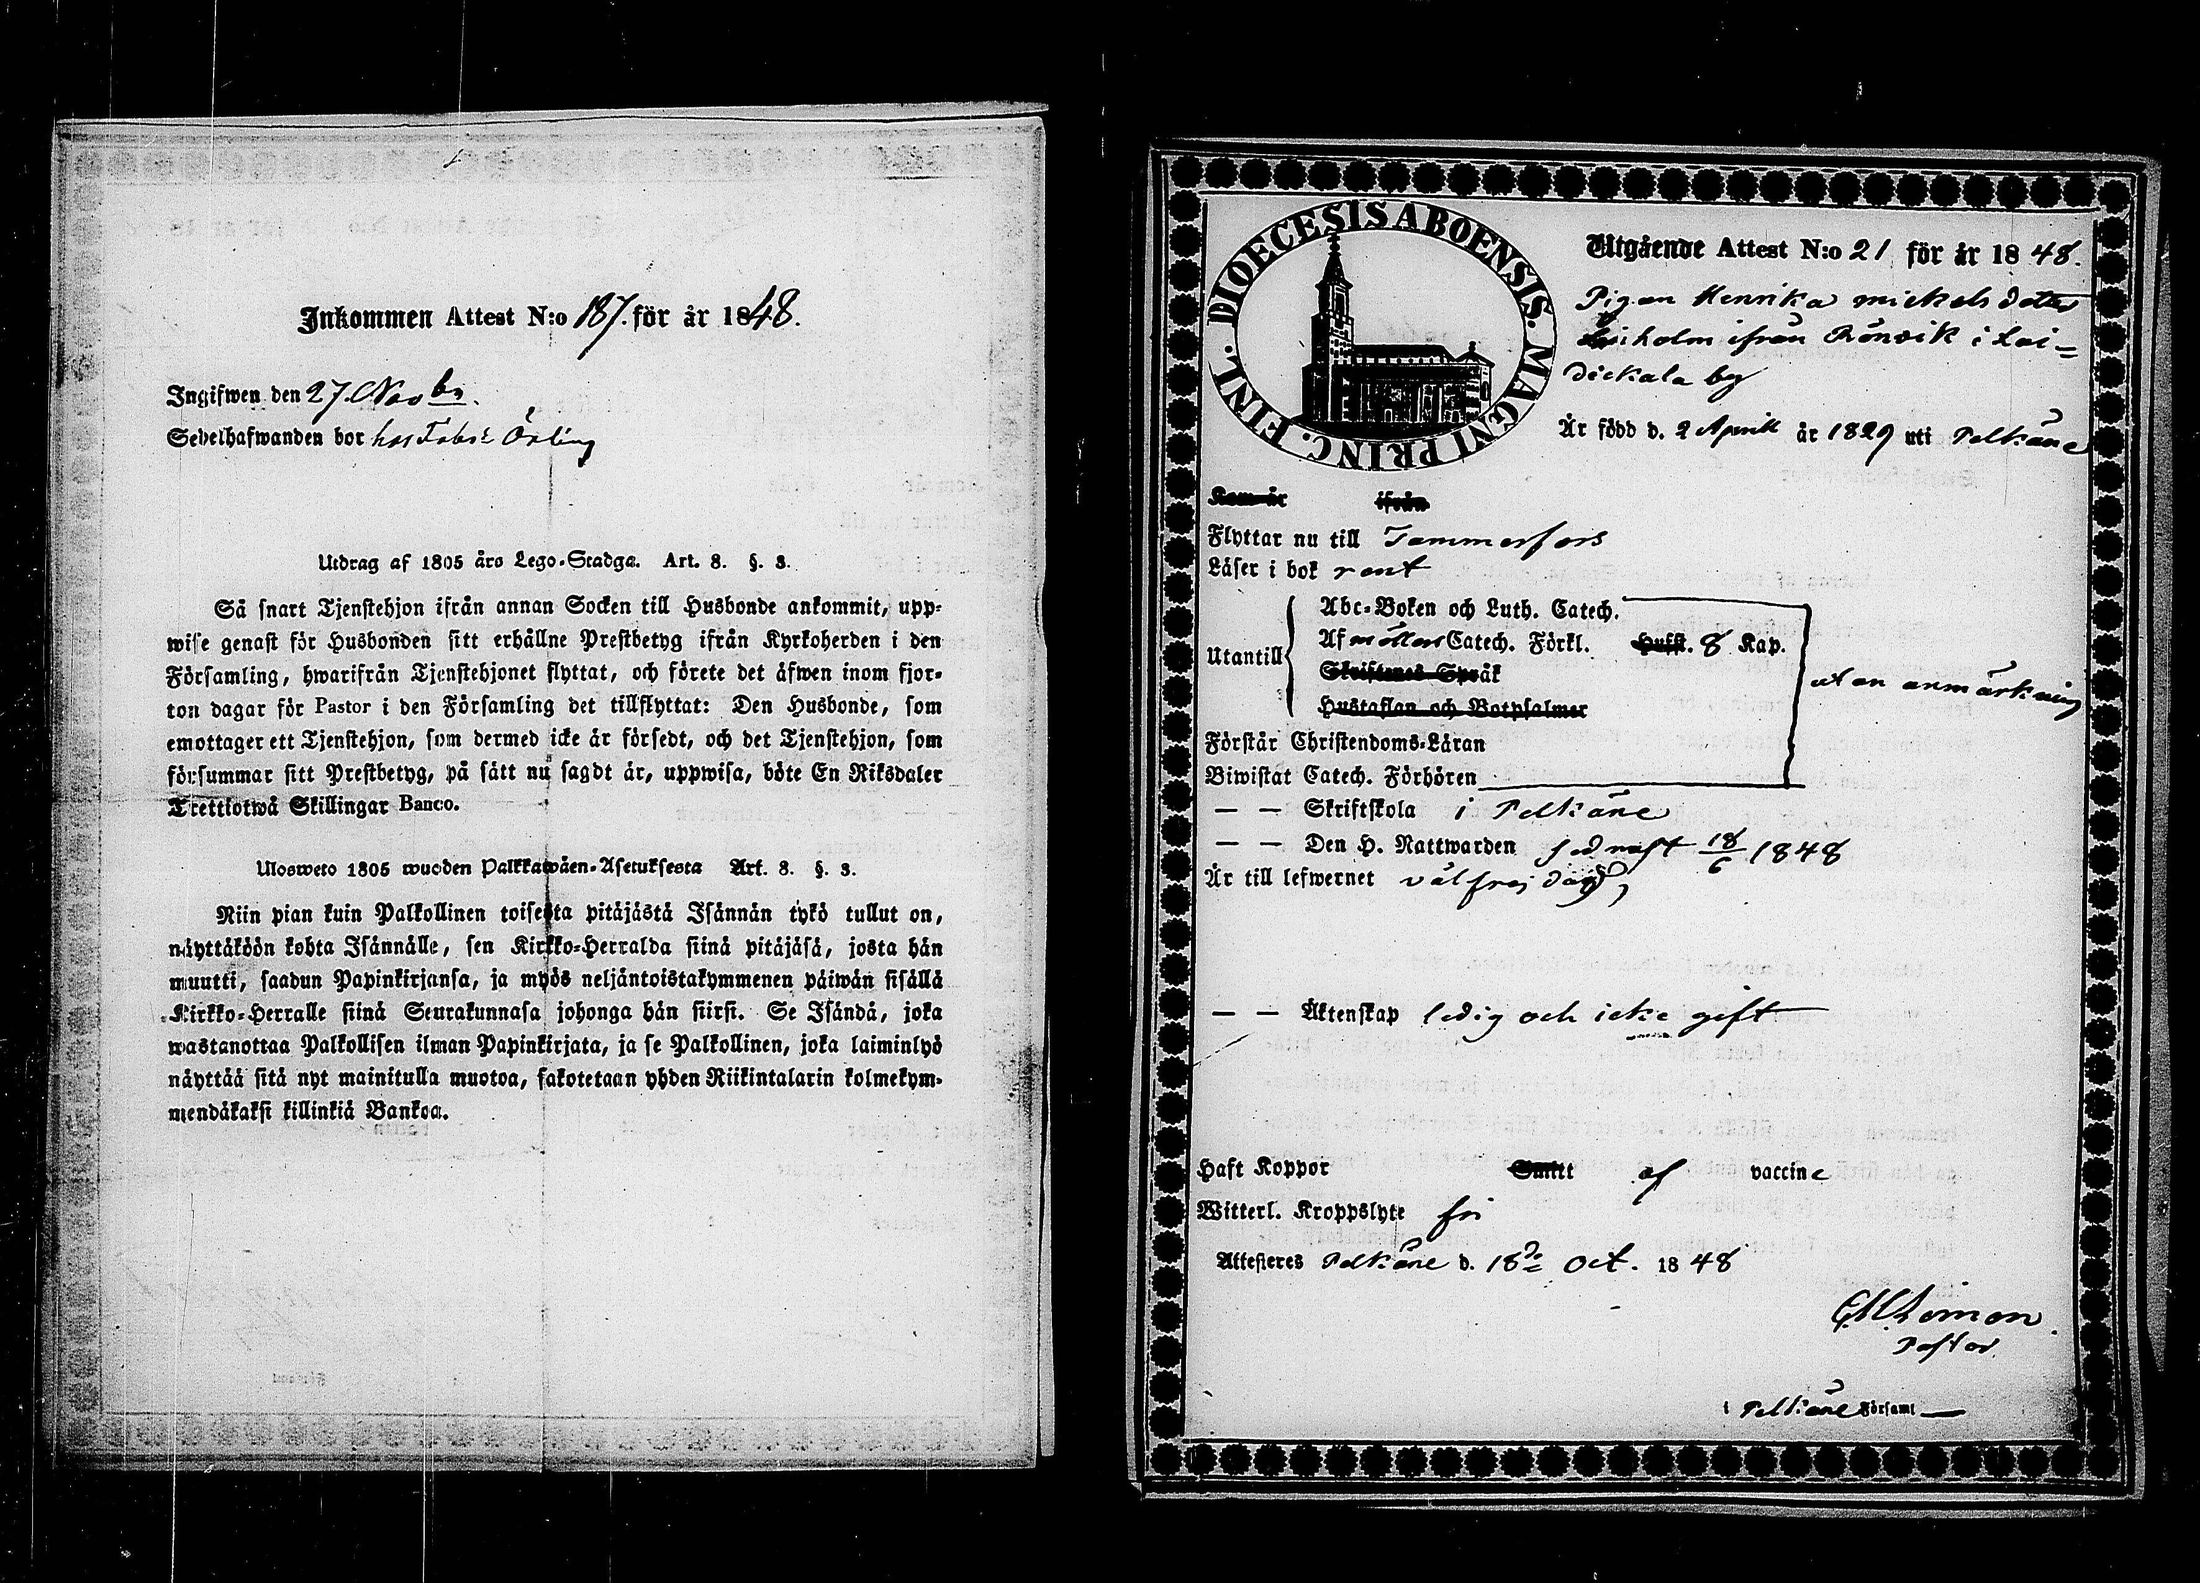 Inkommen Attest N:o 187. för år 1848.
Ingifwen den 27. Novbr.
Sedelhafwanden bor hos Fabr: Örling
Utdrag af 1805 års Lego-Stadga. Art. 8. §. 3.
Så snart Tjenstehjon ifrån annan Socken till Husbonde ankommit, upp-
wise genast för Husbonden sitt erhållne Prestbetyg ifrån Kyrkoherden i den
Församling, hwarifrån Tjenstehjonet flyttat, och förete det äfwen inom fjor-
ton dagar för Pastor i den Församling det tillflyttat: Den Husbonde, som
emottager ett Tjenstehjon, som dermed icke är försedt, och det Tjenstehjon, som
försummar sitt Prestbetyg, på sätt nu sagdt är, uppwisa, böte En Riksdaler
Trettiotwå Skillingar Banco.
Ulosweto 1805 wuoden Palkkawäen-Asetuksesta Art. 8. §. 3.
Niin pian kuin Palkollinen toisesta pitäjästä Isännän tykö tullut on,
näyttäköön kohta Isännälle, sen Kirkko-Herralda siinä pitäjäsä, josta hän
muutti, saadun Papinkirjansa, ja myös neljäntoistakymmenen päiwän sisällä
Kirkko-Herralle siinä Seurakunnasa johonga hän siirsi. Se Isändä, joka
wastanottaa Palkollisen ilman Papinkirjata, ja se Palkollinen, joka laiminlyö
näyttää sitä nyt mainitulla muotoa, sakotetaan yhden Riikintalarin kolmekym-
mendäkaksi killinkiä Bankoa.
DIOECESIS ABOENSIS. MAGNI PRINC. FINL.
Utgående Attest N:o 21 för år 1848.
Pigan Henrika Mickelsdotter
holm ifrån Rönvik i Lai=
dickala by
Är född d. 2 April år 1829 uti Pelkäne
Kom år ifrån
Flyttar nu till Tammerfors
Läser i bok rent
Utantill
Abc-Boken och Luth. Catech.
Af Möllers Catech. Förkl. Husst. 8 Kap.
Skriftenes Språk
Hustaflan och Botpsalmer
utan anmärkning
Förstår Christendoms-Läran
Biwistat Catech. Förhören
— — Skriftskola i Pelkäne
— — Den H. Nattwarden sednast 18/6 1848
Är till lefwernet välfrejdad,
— — Äktenskap ledig och icke gift
Haft Koppor Smitt af vaccine
Witterl. Kroppslyte fri
Attesteres Pelkäne d. 18de Oct. 1848
Pastor.
i Pelkäne Församl